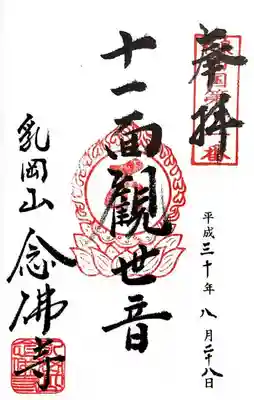 奉拝
平成三十年八月二十八日
十一面觀世音
乳岡山
念佛寺